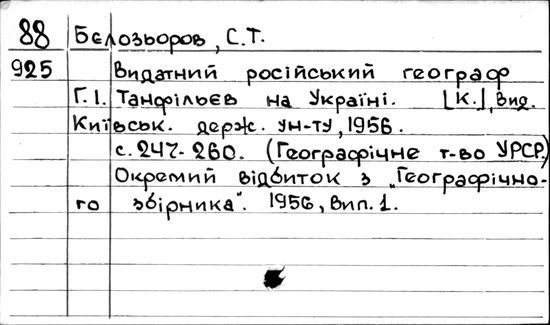 88 Бєлозьоров, С.Т.
925 Видатний російський географ
Г.І. Танфільєв на Україні. [К.], Вид.
Київськ. держ. ун-ту, 1956.
с. 247-260. (Географічне т-во УРСР.)
Окремий відбиток з „Географічно-
го збірника". 1956, Вип. 1.